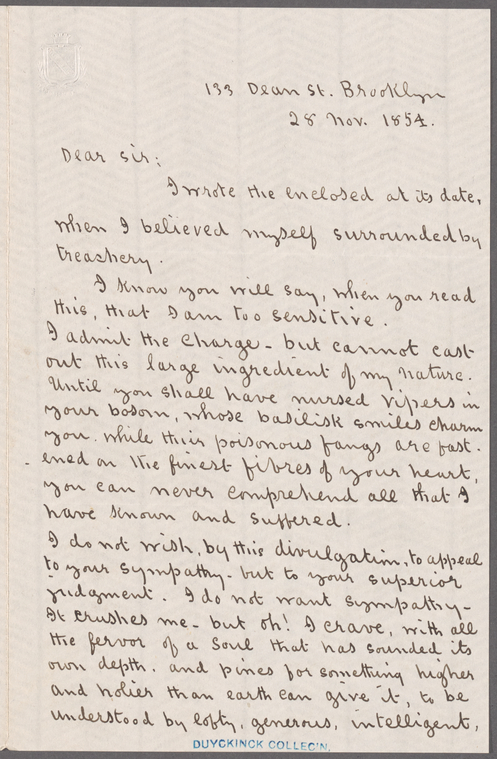 133 Dean St. Brooklyn
28 Nov. 1854.
Dear Sir:
I wrote the enclosed at its date,
when I believed myself surrounded by
treachery.
I know you will say, when you read
this, that I am too sensitive.
I admit the charge - but cannot cast
out this large ingredient of my nature.
Until you shall have nursed vipers in
your bosom, whose basilisk smiles charm
you. while their poisonous fangs are fast-
ened on the finest fibres of your heart,
you can never comprehend all that I
have known and suffered.
I do not wish, by this divulgation, to appeal
to your sympathy - but to your superior
judgment. I do not want sympathy -
It crushes me - but oh! I crave, with all
the fervor of a soul that has sounded its
own depth. and pines for something higher
and holier than earth can give it, to be
understood by lofty, generous, intelligent,
DUYCKINCK COLLEC'N.